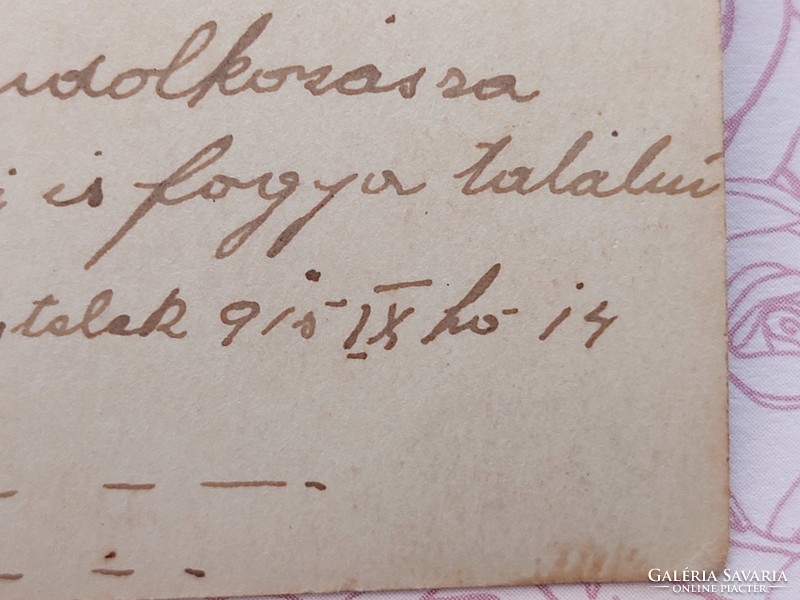 ndolkozásra
i is fogya találni
telek 915 IX hó 14
GALÉRIA SAVARIA
ONLINE PIACTÉR